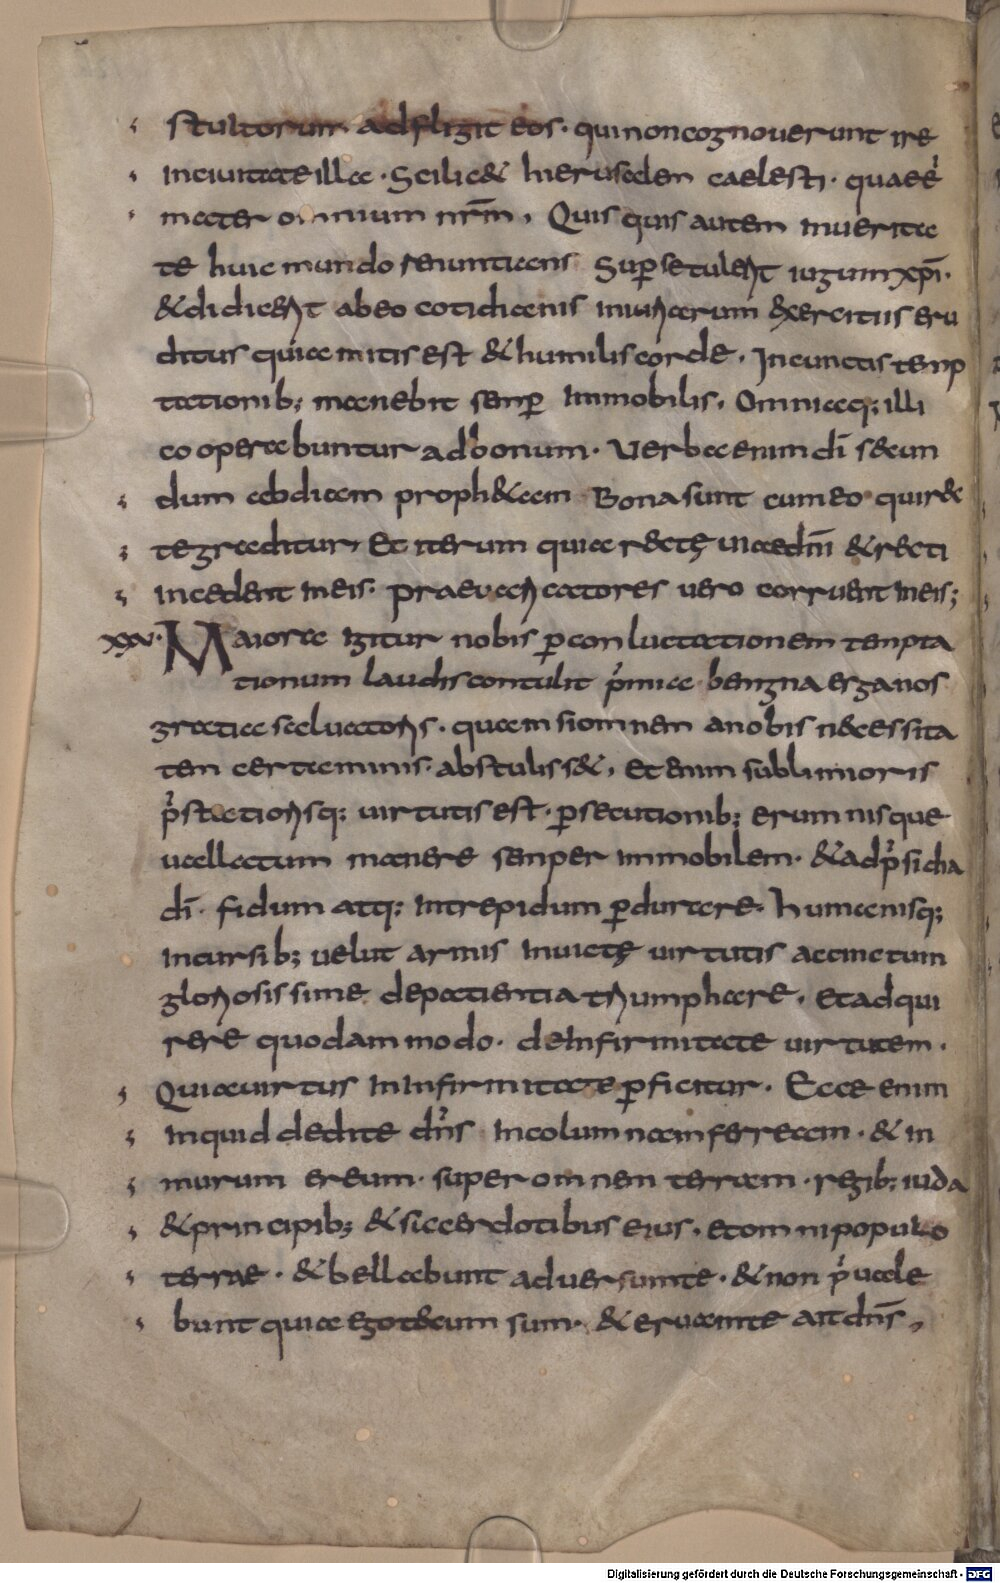 stultorum adfligit eos. qui non cognouerunt ire
in ciuitate illa. Scilic& hierusalem caelesti. quae ē
mater omnium nr̄m. Quis quis autem in uerita
te huic mundo renuntians Super se tulerit iugum xp̄i.
& didicerit ab eo cotidianis iniuriarum exercitiis eru
ditus quia mitis est & humilis corde. In cunctis temp
tationib; manebit semp̄ immobilis. Omniaq; illi
co operabuntur ad bonum. Uerba enim dī secun
dum abdiam proph&am Bona sunt cum eo qui rec
te graditur, Et iterum quia rectę uiae dn̄i & recti
incedent in eis. praeuaricatores uero corruent in eis;
xxv. Maiora igitur nobis p̄ conluctationem tempta
tionum laudis contulit p̄mia benigna erga nos
gratia saluatoris. quam si omnem a nobis necessita
tem certaminis abstulisset, Et enim sublimioris
p̄stationisq; uirtutis est. p̄secutionib; erumnisque
uallatum manere semper immobilem. & ad p̄sidia
dī. fidum atq; intrepidum p̄durare. humanisq;
incursib; uelut armis inuictę uirtutis accinctum
gloriosissime de patientia triumphare. Et adqui
rere quodam modo. de infirmitate uirtutem.
Quia uirtus in infirmitate p̄ficitur. Ecce enim
inquid dedi te dn̄s in columnam ferream. & in
murum ereum. super omnem terram. regib; iuda
& principib; & sacerdotibus eius. et omni populo
terrae. & bellabunt aduersum te. & non p̄uale
bunt quia ego tecum sum. & eruam te ait dn̄s,
Digitalisierung gefördert durch die Deutsche Forschungsgemeinschaft - DFG